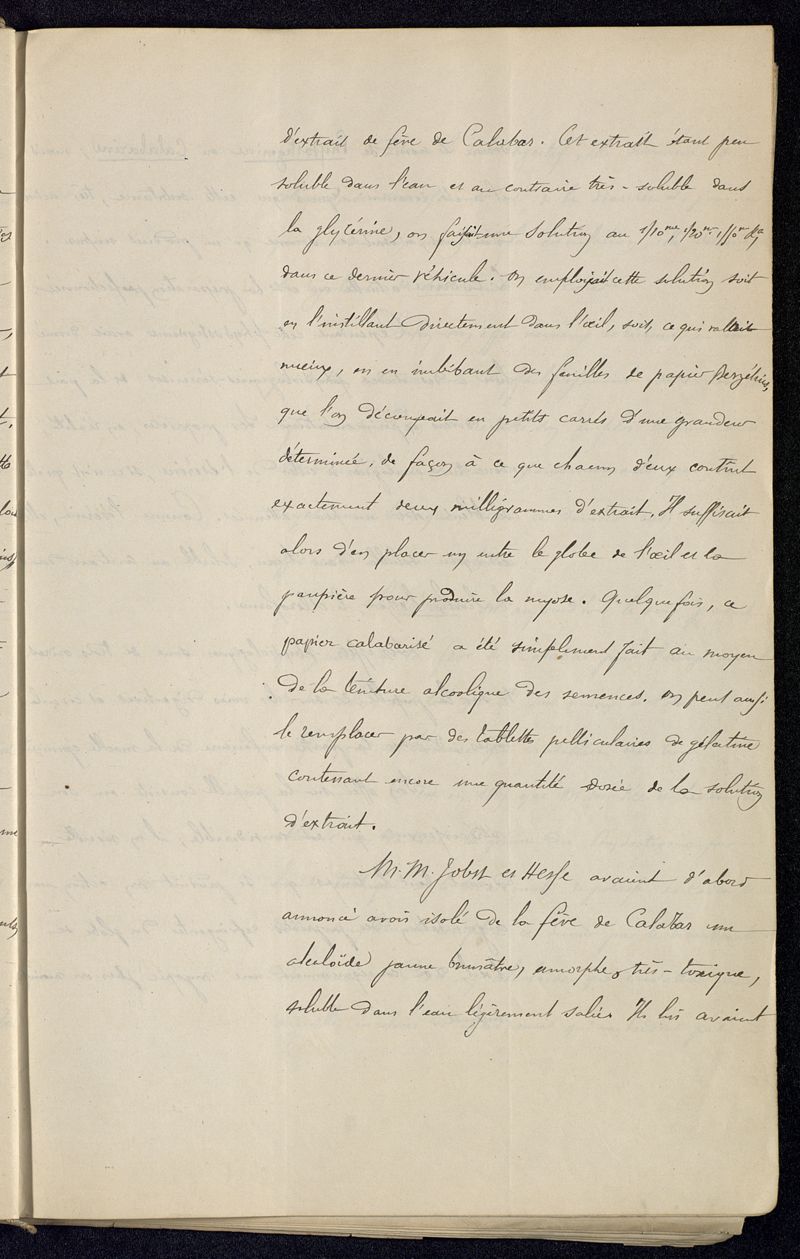 d'extrait de fève de Calabar. Cet extrait étant peu
soluble dans l'eau et au contraire très-soluble dans
la glycérine, on faisait une solution au 1/10me, 1/20me,
dans ce dernier véhicule. On employait cette solution soit
en l'instillant directement dans l'œil, soit, ce qui valait
mieux, en en imbibant des feuilles de papier Berzélius,
que l'on découpait en petits carrés d'une grandeur
déterminée, de façon à ce que chacun d'eux contint
exactement deux milligrammes d'extrait. Il suffisait
alors d'en placer un entre le globe de l'œil et la
paupière pour produire la myose. Quelquefois, ce
papier calabarisé a été simplement fait au moyen
de la teinture alcoolique des semences. On peut aussi
le remplacer par des tablettes pelliculaires de gélatine
contenant encore une quantité dosée de la solution
d'extrait.
M.M. Jobst et Hesse avaient d'abord
annoncé avoir isolé de la fève de Calabar un
alcaloïde jaune brunâtre, amorphe, très-toxique,
soluble dans l'eau légèrement salée. Ils lui avaient